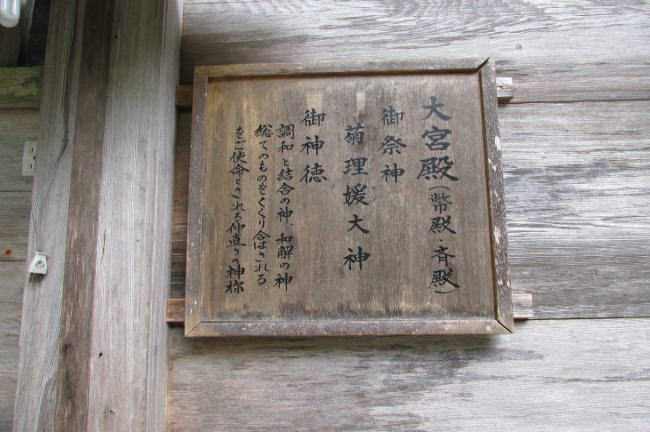 大宮殿(幣殿・斉殿)
御祭神
菊理媛大神
御神徳
調和と結合の神、和解の神
総てのものをくくり合はされる、
をご使命とされる仲直りの神祢